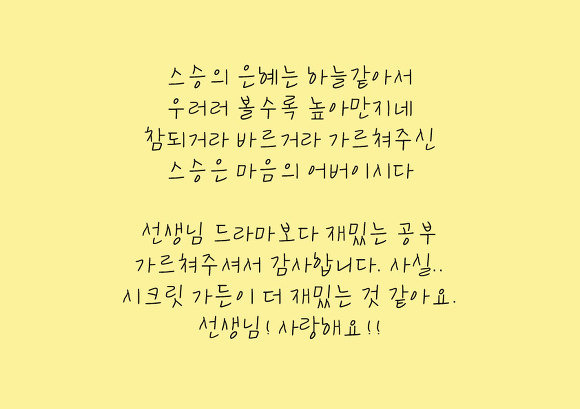 스승의 은혜는 하늘같아서
우러러 볼수록 높아만지네
참되거라 바르거라 가르쳐주신
스승은 마음의 어버이시다
선생님 드라마보다 재밌는 공부
가르쳐주셔서 감사합니다. 사실..
시크릿 가든이 더 재밌는 것 같아요.
선생님! 사랑해요!!